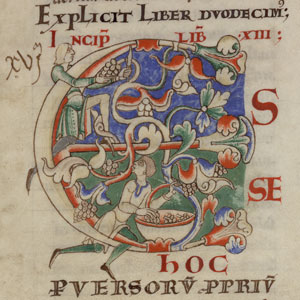 EXPLICIT LIBER DUODECIM;
INCIP LIB XIII:
E S
SE
hOC
PVERSORV P PRIV